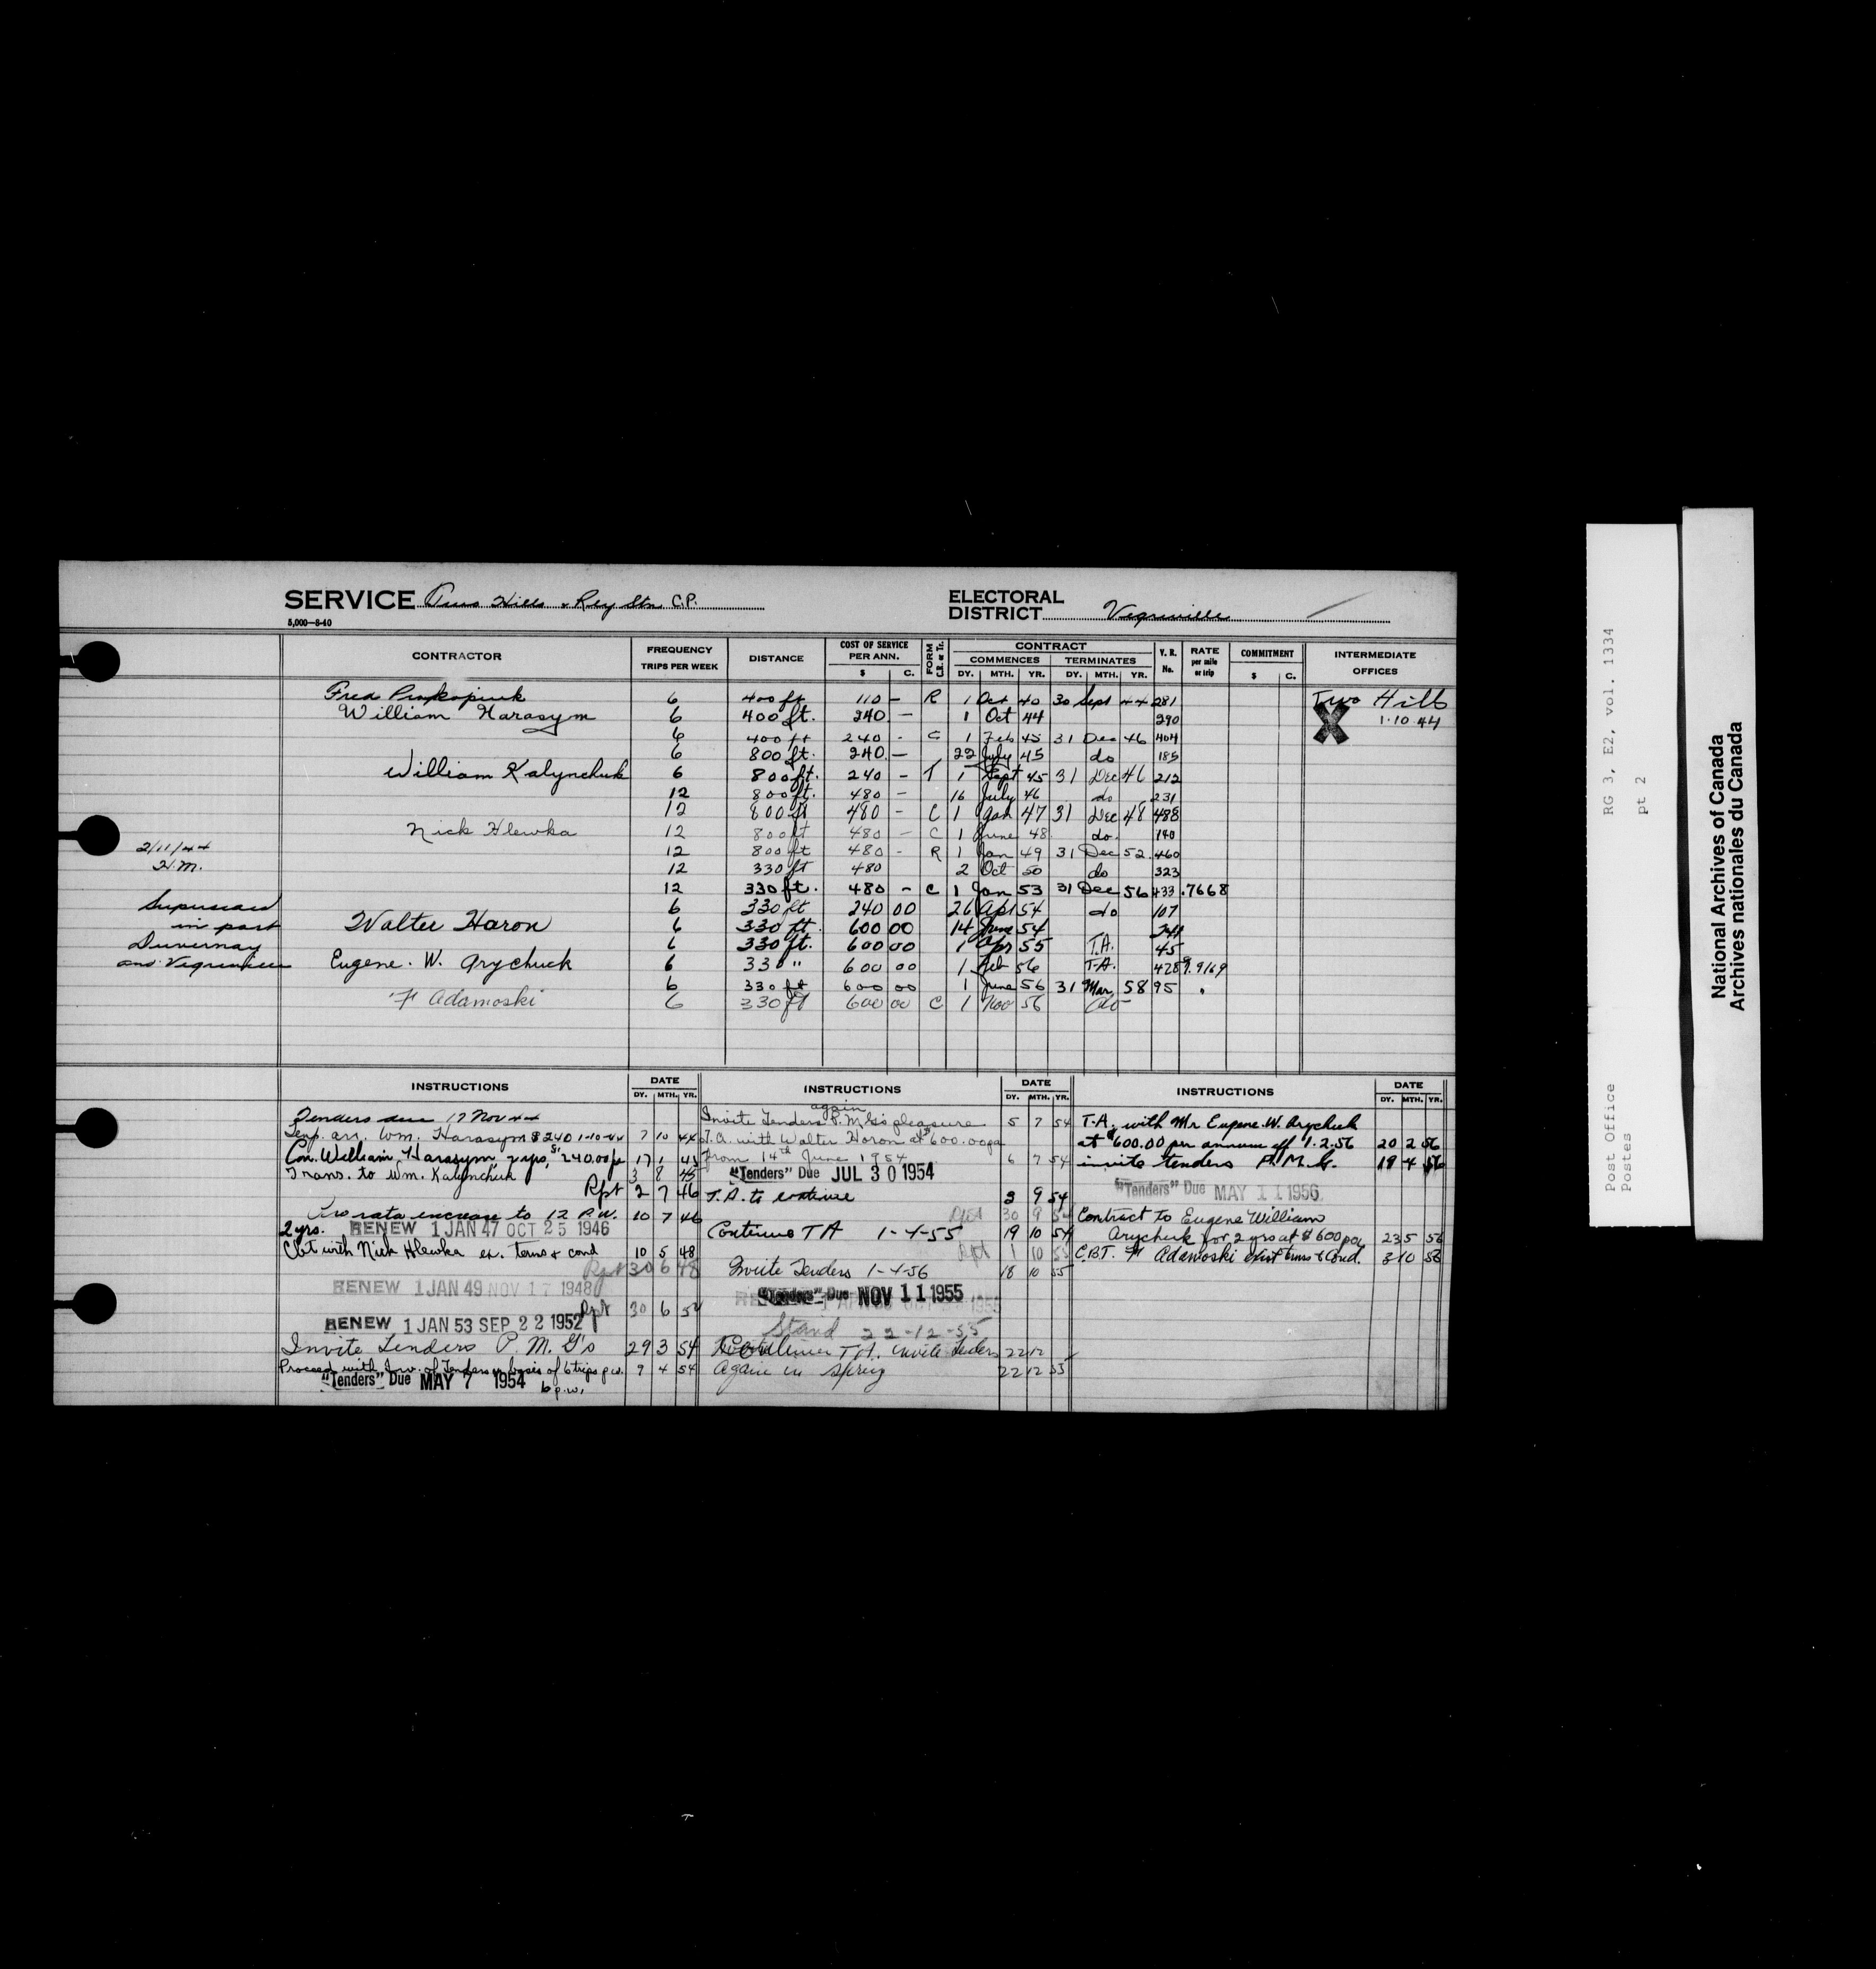 SERVICE Two Hills & Rly Stn C.P.
ELECTORAL DISTRICT Vegreville
5,000—8-40
CONTRACTOR FREQUENCY TRIPS PER WEEK DISTANCE COST OF SERVICE PER ANN. $ C. FORM C.R. or Tr. CONTRACT COMMENCES DY. MTH. YR. TERMINATES DY. MTH. YR. V. R. No. RATE per mile or trip COMMITMENT $ C. INTERMEDIATE OFFICES
Fred Prokopiuk 6 400 ft 110 — R 1 Oct 40 30 Sept 44 281 Two Hills
William Harasym 6 400 ft. 240 — 1 Oct 44 290 X 1.10.44
6 400 ft 240 - C 1 Feb 45 31 Dec 46 404
6 800 ft. 240 — 22 July 45 do 185
William Kalynchuk 6 800 ft. 240 - T 1 Sept 45 31 Dec 46 212
12 800 ft. 480 - 16 July 46 do 231
12 800 ft 480 - C 1 Jan 47 31 Dec 48 488
Nick Hlewka 12 800 ft 480 - C 1 June 48 do. 140
2/11/44
12 800 ft 480 - R 1 Jan 49 31 Dec 52 460
H.M.
12 330 ft 480 2 Oct 50 do 323
12 330 ft. 480 - C 1 Jan 53 31 Dec 56 433 .7668
6 330 ft 240 00 26 Apr 54 do 107
in part
Walter Haron 6 330 ft. 600 00 14 June 54
Duvernay
6 330 ft. 600 00 1 Apr 55 T.A. 45
and Vegreville
Eugene. W. Arychuck 6 330 " 600 00 1 Feb 56 T.A. 428
6 330 ft 600 00 1 June 56 31 Mar 58 95
F Adamoski 6 330 ft 600 00 C 1 Nov 56 do
INSTRUCTIONS DATE DY. MTH. YR.
Tenders due 17 Nov 44
Temp. arr. Wm. Harasym $240 1-10-44 7 10 44
Con. William Harasym, 2 yrs, $240.00 pa 17 1 45
Trans. to Wm. Kalynchuk 3 8 45
Rpt 2 7 46
Pro rata increase to 12 P.W. 10 7 46
2 yrs. RENEW 1 JAN 47 OCT 25 1946
Cbt with Nick Hlewka ex. terms & cond 10 5 48
Rpt 30 6 48
RENEW 1 JAN 49 NOV 17 1948
Rpt 30 6 52
RENEW 1 JAN 53 SEP 22 1952
Invite Tenders P. M. G's 29 3 54
Proceed with Inv. of Tenders on basis of 6 trips p.w. 9 4 54
"Tenders" Due MAY 7 1954
6 p.w.
INSTRUCTIONS DATE DY. MTH. YR.
again
Invite Tenders P.M.G's pleasure 5 7 54
T.A. with Walter Haron at $600.00 pa
from 14th June 1954 6 7 54
"Tenders" Due JUL 30 1954
T.A. to continue 3 9 54
Rpt 30 9 54
Continue TA 1-4-55 19 10 54
Rpt 1 10 55
Invite Tenders 1-4-56 18 10 55
"Tenders" Due NOV 11 1955
Stand 22-12-55
Continue T.A. Invite Tenders 22 12
again in Spring 22 12 55
INSTRUCTIONS DATE DY. MTH. YR.
T.A. with Mr Eugene. W. Arychuk
at $600.00 per annum eff 1.2.56 20 2 56
invite tenders P.M.G. 19 4 56
"Tenders" Due MAY 11 1956
Contract to Eugene William
Arychuk for 2 yrs at $600 pa 23 5 56
C.B.T. F Adamoski exist terms & Cond. 3 10 56
RG 3, E2, vol. 1334
pt 2
Post Office
Postes
National Archives of Canada
Archives nationales du Canada